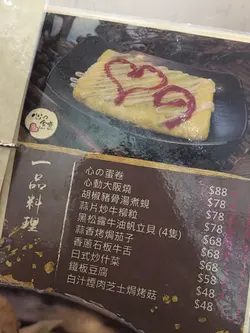 心の食堂
一品料理
心の蛋卷 $88
心動大阪燒 $78
胡椒豬骨湯煮蜆 $78
蒜片炒牛柳粒 $78
黑松露牛油帆立貝 (4隻) $78
蒜香烤焗茄子 $68
香蔥石板牛舌 $68
日式炒什菜 $58
鐵板豆腐 $48
白汁煙肉芝士焗烤菇 $48